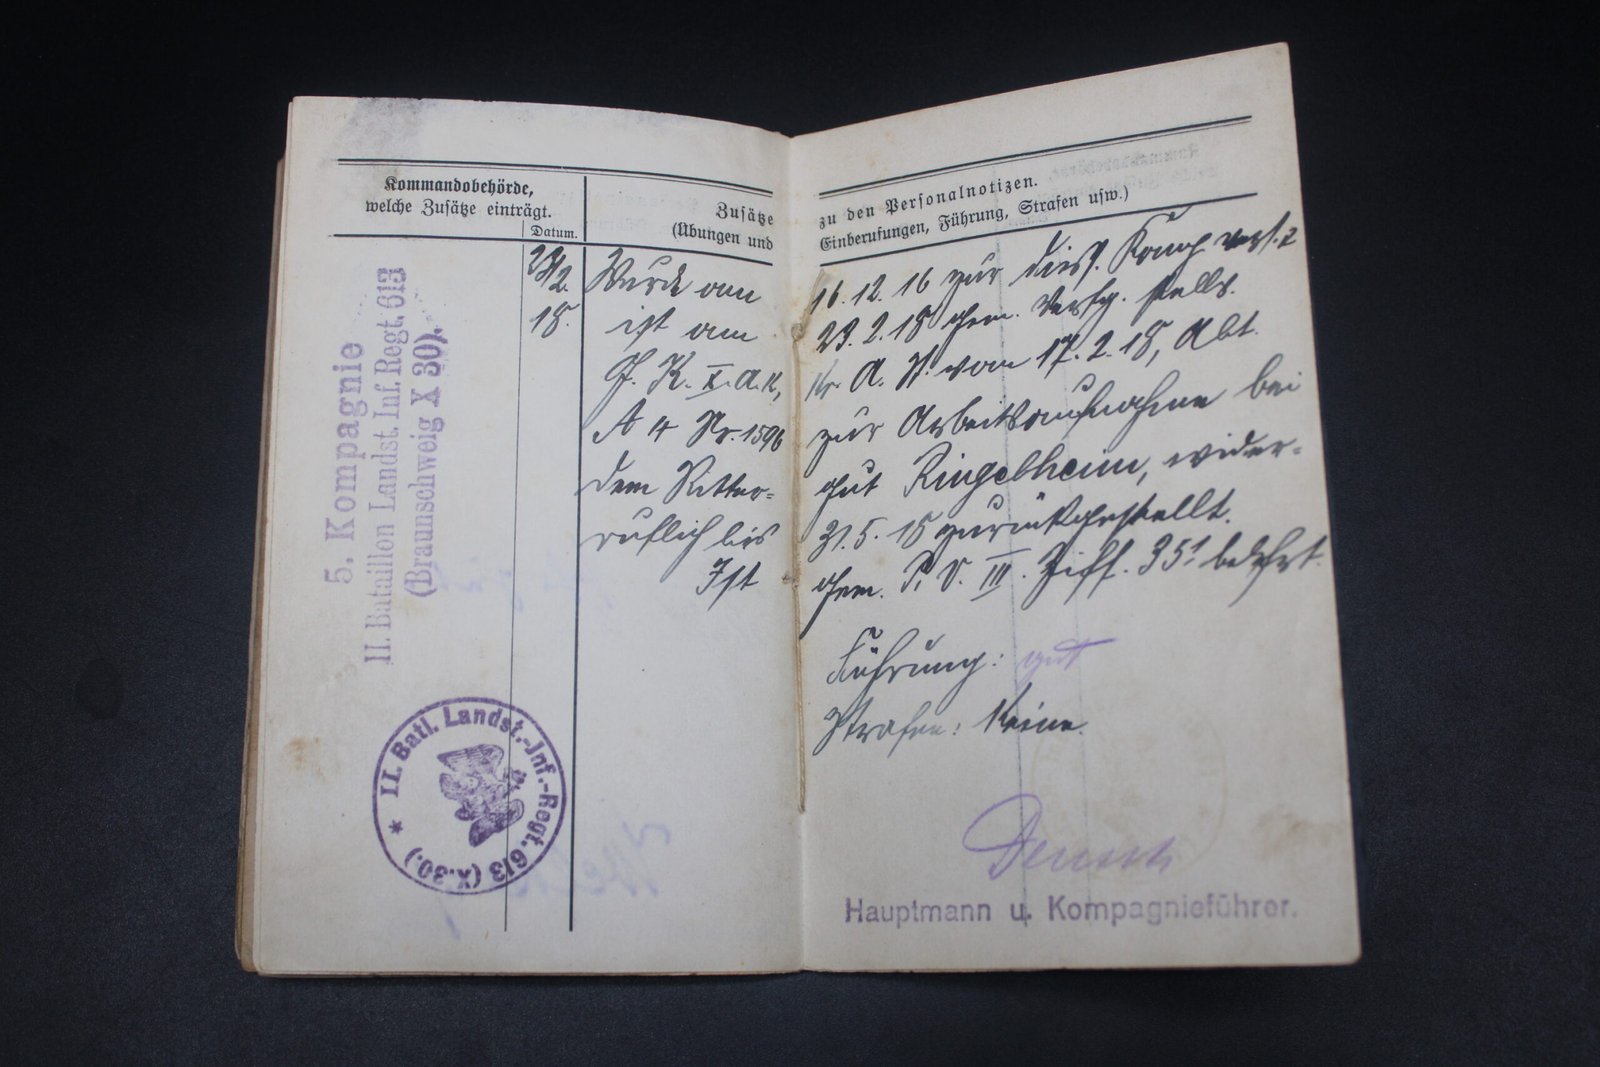 Kommandobehörde,
welche Zusätze einträgt.
Datum.
Zusätze
(Übungen und
zu den Personalnotizen.
Einberufungen, Führung, Strafen usw.)
5. Kompagnie
II. Bataillon Landst. Inf. Regt. 613
(Braunschweig X 30).
23/2.
18.
Wurde am 16. 12. 16 zur diess. Komp. vers. &
ist am 23. 2. 18 gem. Verfg. stellv.
G. K. X. A. K., vom 17. 2. 18, Abt.
A 4 Nr. 1596 zur Arbeitsaufnahme bei
dem Ritter= gut Ringelheim, wider=
ruflich bis 31. 5. 18 zurückgestellt.
Ist gem. III. Ziff. 35 belehrt.
Führung: gut
Strafen: Keine.
* II. Batl. Landst.-Inf.-Regt. 613 (X.30.)
Hauptmann u. Kompagnieführer.